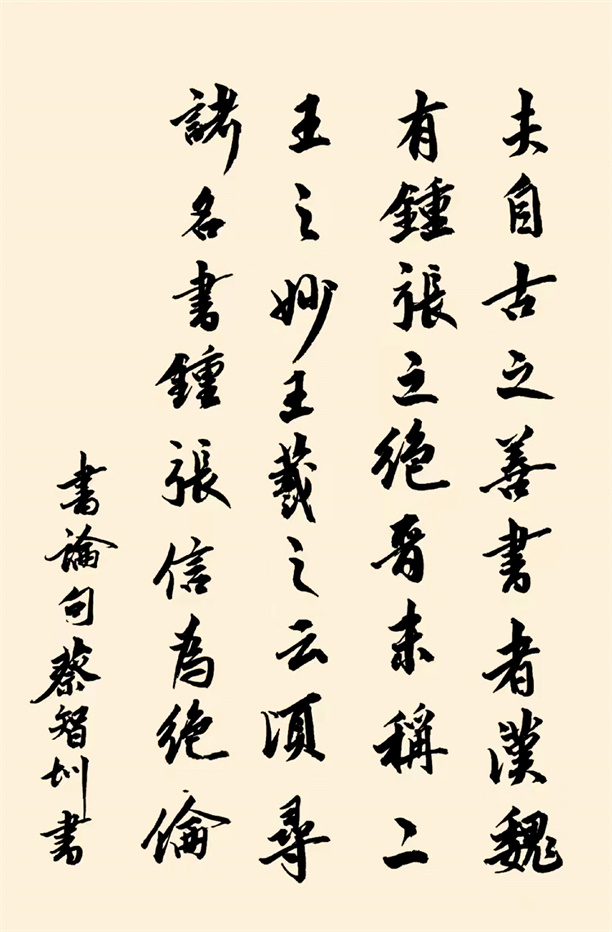 夫自古之善書者漢魏
有鍾張之絕晉末稱二
王之妙王羲之云須尋
諸名書鍾張信為絕倫
書論句蔡智圳書